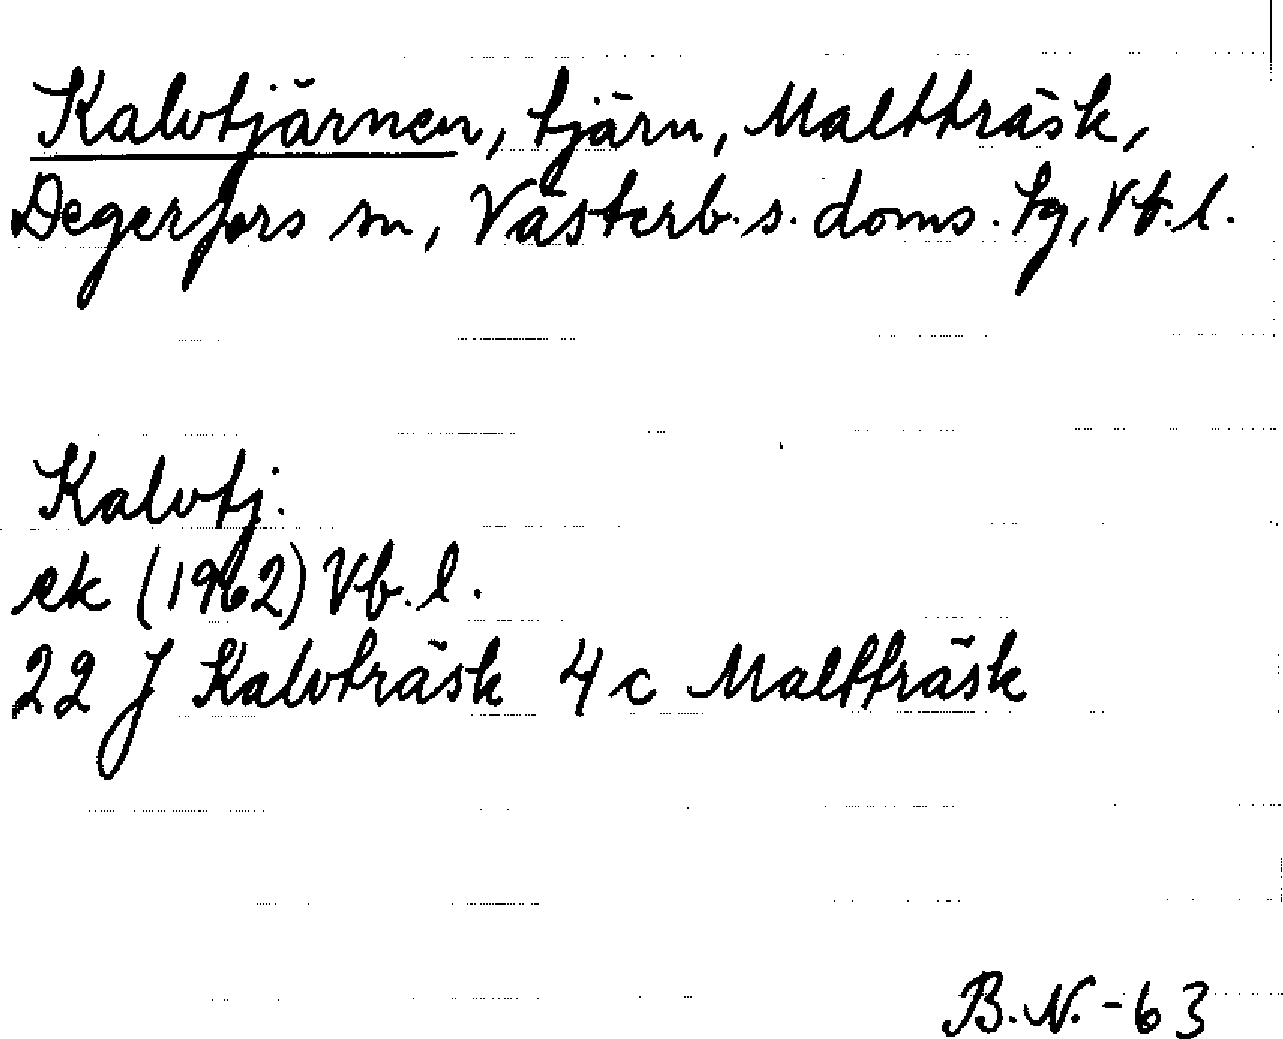 Kalvtjärnen, tjärn, Maltträsk,
Degerfors sn, Västerb. s. doms. tg, Vb. l.
Kalvtj.
ek (1962) Vb. l.
22 J Kalvträsk 4 c Maltträsk
B.N. -63